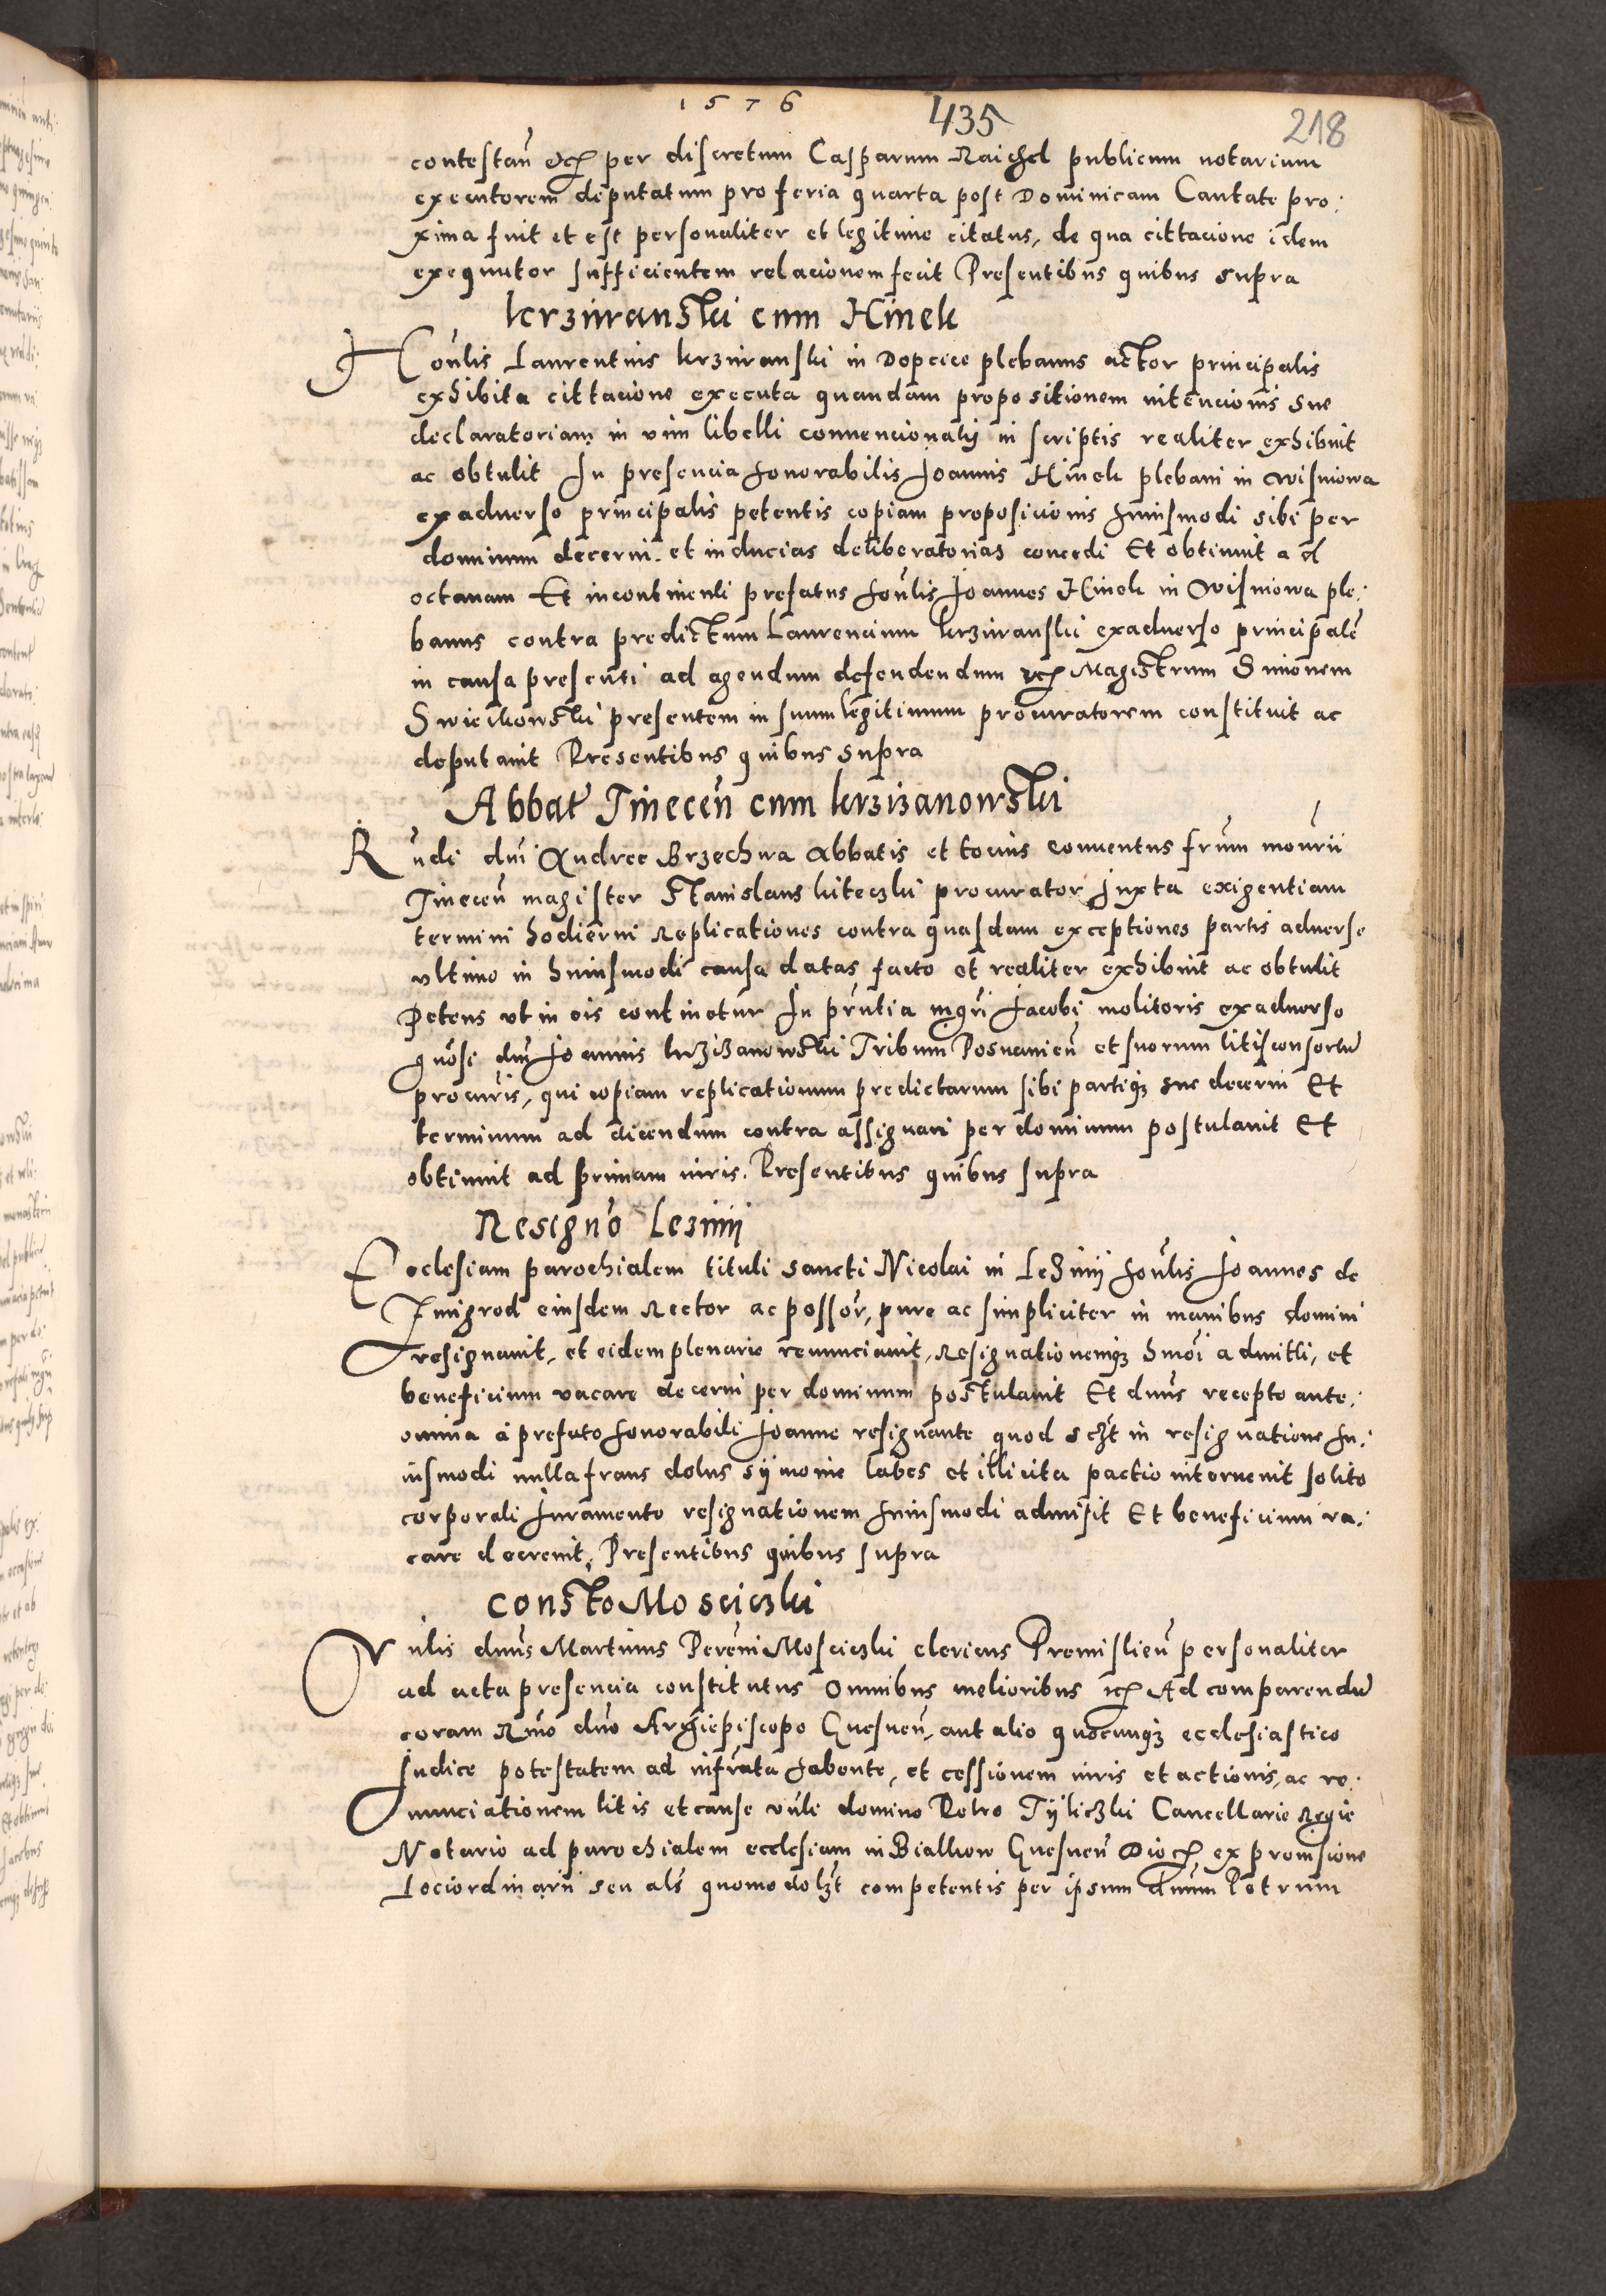 1576
435
218
contestan̄ etc̄ per discretum Casparum Raichel publicum notarium
executorem deputatum pro feria quarta post Dominicam Cantate pro:
xima fuit et est personaliter et legitime citatus, de qua cittacione idem
exequutor sufficientem relacionem fecit Presentibus quibus supra
Krziwanski cum Hinek
Hon̄lis Laurentius krziwanski in Dopcice plebanus actor principalis
exhibita cittacione executa quandam propositionem intencionis sue
declaratoriam in vim libelli convencionalij in scriptis realiter exhibuit
ac obtulit In presencia honorabilis Joannis Hinek plebani in Wisniowa
exadverso principalis petentis copiam proposicionis huiusmodi sibi per
dominum decerni et inducias deliberatorias concedi Et obtinuit ad
octavam Et incontinenti prefatus hon̄lis Joannes Hinek in Wisniowa ple:
banus contra predictum Laurencium krziwanski exadverso principalē
in causa presenti ad agendum defendendum etc̄ Magistrum Simonem
Swieikowski presentem in suum legitimum procuratorem constituit ac
deputavit Presentibus quibus supra
Abbat̄ Tinecen̄ cum krzizanowski
Rn̄di dn̄i Andree Brzechwa Abbatis et tocius conventus frūm monrii
Tinecen̄ magister Stanislaus kiteczki procurator Juxta exigentiam
termini hodierni Replicationes contra quasdam exceptiones partis adverse
ultimo in huiusmodi causa datas facto et realiter exhibuit ac obtulit
Petens ut in eis continetur In prn̄tia mgr̄i Jacobi molitoris exadverso
gn̄osi dn̄i Joannis krzizanowski Tribuni Posnanien̄ et suorum litisconsortū
procur̄is, qui copiam replicationum predictarum sibi partiq3 sue decerni Et
terminum ad dicendum contra assignari per dominum postulavit Et
obtinuit ad primam iuris. Presentibus quibus supra
Resigno Lezinij
Ecclesiam parochialem tituli sancti Nicolai in Lezinij hon̄lis Joannes de
Imigrod eiusdem Rector ac possor̄, pure ac simpliciter in manibus domini
resignavit, et eidem plenarie renunciavit, Resignationemq3 hmōi admitti, et
beneficium vacare decerni per dominum postulavit Et dn̄us recepto ante:
omnia a prefato honorabili Joanne resignante quod sczt in resignatione hu:
iusmodi nulla fraus dolus sijmonie labes et illicita pactio intervenit solito
corporali Juramento resignationem huiusmodi admisit Et beneficium va:
care decrevit. Presentibus quibus supra
Consto Mosciczki
Vn̄lis dn̄us Martinus Mosciczki clericus Premislien̄ personaliter
ad acta presencia constitutus Omnibus melioribus etc̄ Ad comparendū
coram Rmō dn̄o Archiepiscopo Gnesnen̄, aut alio quocunq3 ecclesiastico
Judice potestatem ad infrāta habente, et cessionem iuris et actionis, ac re:
nunciationem litis et cause vn̄li domino Petro Tijliczki Cancellarie Regie
Notario ad parochialem ecclesiam in Bialkow Gnesnen̄ Dioc̄ ex provisione
Lociordinarii seu als̄ quomodolzt competentis per ipsum dn̄um Petrum